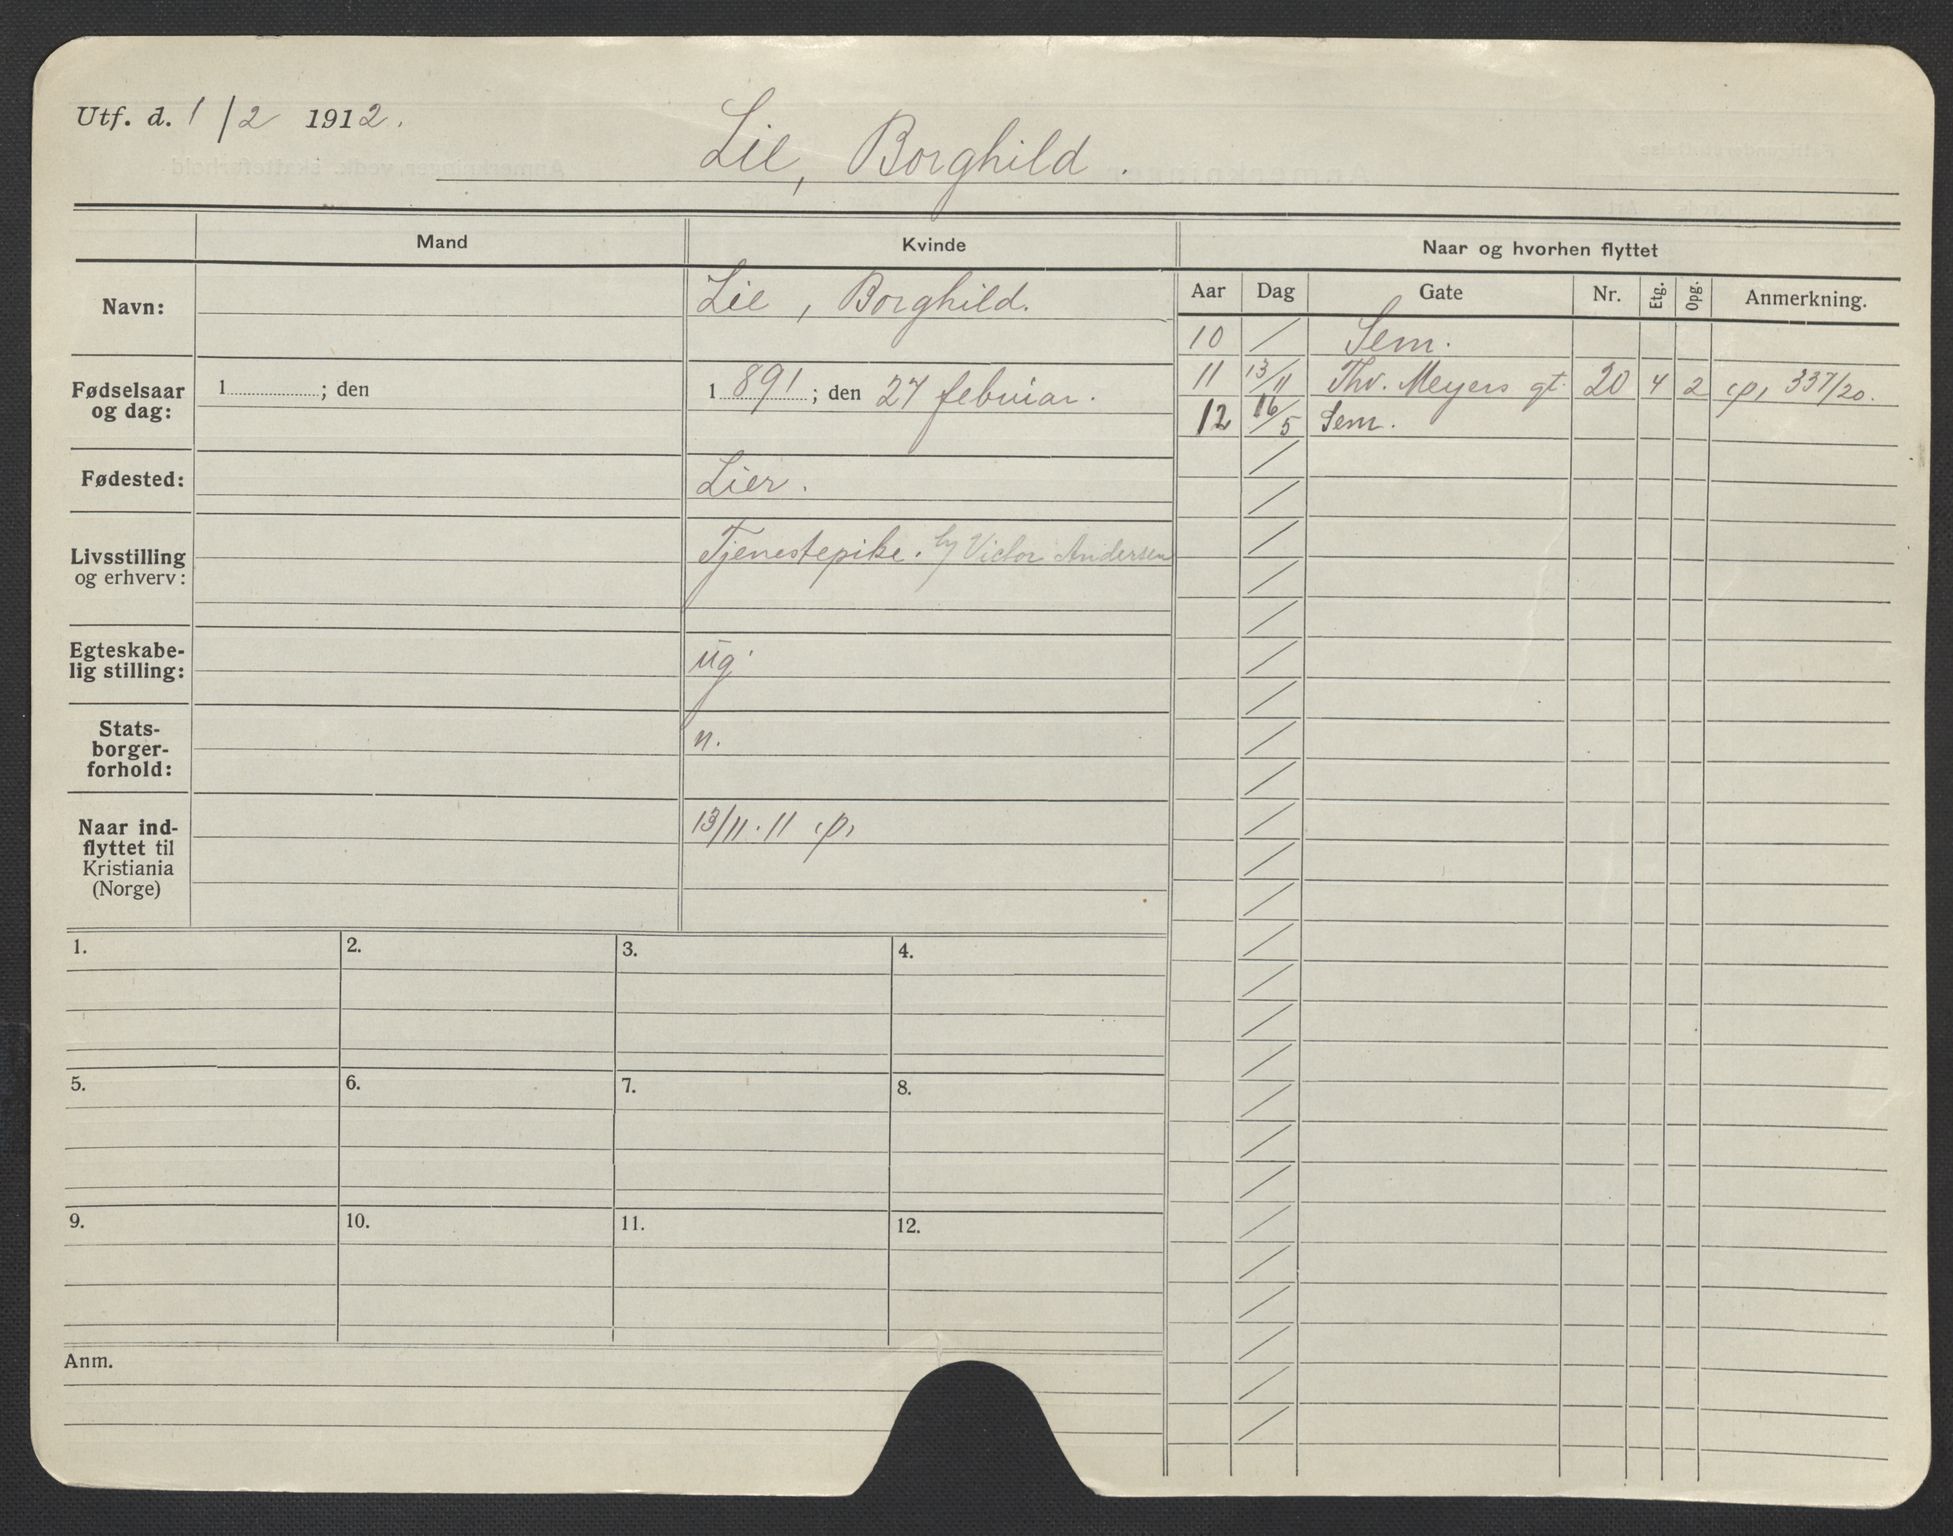 Utf. d. 1/2 1912.
Lie, Borghild.
Mand
Kvinde
Naar og hvorhen flyttet
Navn:
Lie, Borghild.
Fødselsaar
og dag:
1 ; den
1 891 ; den 27 februar.
Fødested:
Lier.
Livsstilling
og erhverv:
Tjenestepike. hy Victor Andersen
Egteskabe-
lig stilling:
ug.
Stats-
borger-
forhold:
n.
Naar ind-
flyttet til
Kristiania
(Norge)
13/11. 11 (p)
Aar Dag Gate Nr. Etg. Opg. Anmerkning.
10 / Sem.
11 13/11 Thv. Meyers gt. 20 4 2 (p) 337/20.
12 16/5 Sem.
1. 2. 3. 4.
5. 6. 7. 8.
9. 10. 11. 12.
Anm.